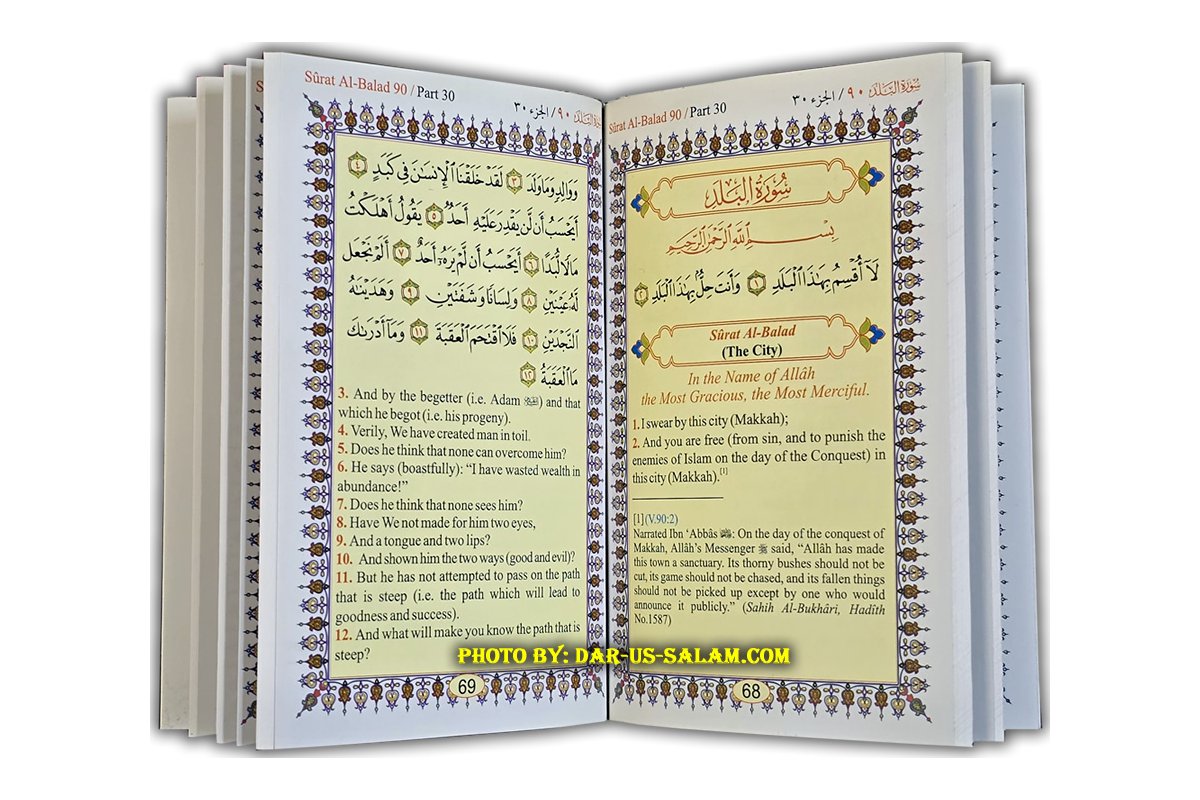 Sûrat Al-Balad 90 / Part 30
سُورَةُ البَلَد ٩٠ / الجزء ٣٠
سُورَةُ البَلَدِ
بِسْمِ ٱللَّهِ ٱلرَّحْمَٰنِ ٱلرَّحِيمِ
لَآ أُقْسِمُ بِهَٰذَا ٱلْبَلَدِ ١ وَأَنتَ حِلٌّۢ بِهَٰذَا ٱلْبَلَدِ ٢
Sûrat Al-Balad
(The City)
In the Name of Allâh
the Most Gracious, the Most Merciful.
1. I swear by this city (Makkah);
2. And you are free (from sin, and to punish the
enemies of Islam on the day of the Conquest) in
this city (Makkah).[1]
[1] (V.90:2)
Narrated Ibn ‘Abbâs : On the day of the conquest of
Makkah, Allâh's Messenger ﷺ said, “Allâh has made
this town a sanctuary. Its thorny bushes should not be
cut, its game should not be chased, and its fallen things
should not be picked up except by one who would
announce it publicly.” (Sahih Al-Bukhâri, Hadîth
No.1587)
68
Sûrat Al-Balad 90 / Part 30
سُورَةُ البَلَد ٩٠ / الجزء ٣٠
وَوَالِدٍ وَمَا وَلَدَ ٣ لَقَدْ خَلَقْنَا ٱلْإِنسَٰنَ فِى كَبَدٍ ٤
أَيَحْسَبُ أَن لَّن يَقْدِرَ عَلَيْهِ أَحَدٌ ٥ يَقُولُ أَهْلَكْتُ
مَالًا لُّبَدًا ٦ أَيَحْسَبُ أَن لَّمْ يَرَهُۥٓ أَحَدٌ ٧ أَلَمْ نَجْعَل
لَّهُۥ عَيْنَيْنِ ٨ وَلِسَانًا وَشَفَتَيْنِ ٩ وَهَدَيْنَٰهُ
ٱلنَّجْدَيْنِ ١٠ فَلَا ٱقْتَحَمَ ٱلْعَقَبَةَ ١١ وَمَآ أَدْرَىٰكَ
مَا ٱلْعَقَبَةُ ١٢
3. And by the begetter (i.e. Adam ) and that
which he begot (i.e. his progeny).
4. Verily, We have created man in toil.
5. Does he think that none can overcome him?
6. He says (boastfully): “I have wasted wealth in
abundance!”
7. Does he think that none sees him?
8. Have We not made for him two eyes,
9. And a tongue and two lips?
10. And shown him the two ways (good and evil)?
11. But he has not attempted to pass on the path
that is steep (i.e. the path which will lead to
goodness and success).
12. And what will make you know the path that is
steep?
69
PHOTO BY: DAR-US-SALAM.COM